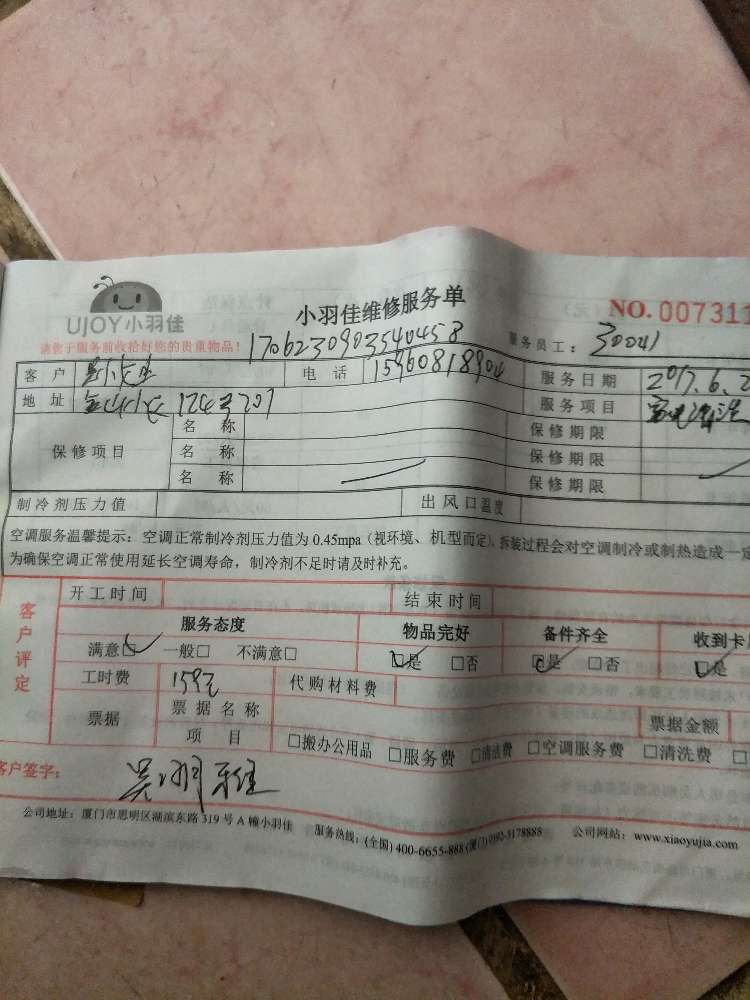 UJOY小羽佳
小羽佳维修服务单
NO. 007311
请您于服务前收拾好您的贵重物品！
1706230903540458
服务员工： 30041
客 户 电 话 服务日期 2017.6.2
地 址 金山小区 124号207 服务项目 家电清洗
保修项目 名 称 保修期限
名 称 保修期限
名 称 保修期限
制冷剂压力值 出风口温度
空调服务温馨提示：空调正常制冷剂压力值为 0.45mpa（视环境、机型而定），拆装过程会对空调制冷或制热造成一定
为确保空调正常使用延长空调寿命，制冷剂不足时请及时补充。
客户评定
开工时间 结束时间
服务态度 物品完好 备件齐全 收到卡
满意☑ 一般□ 不满意□ ☑是 □否 ☑是 □否 ☑是
工时费 159元 代购材料费
票据 票据名称 票据金额
项 目 □搬办公用品 □服务费 □清洁费 □空调服务费 □清洗费 □
客户签字： 吴羽雅
公司地址：厦门市思明区湖滨东路 319 号 A 幢小羽佳 服务热线：(全国) 400-6655-888 (厦门) 0592-5178888 公司网站：www.xiaoyujia.com